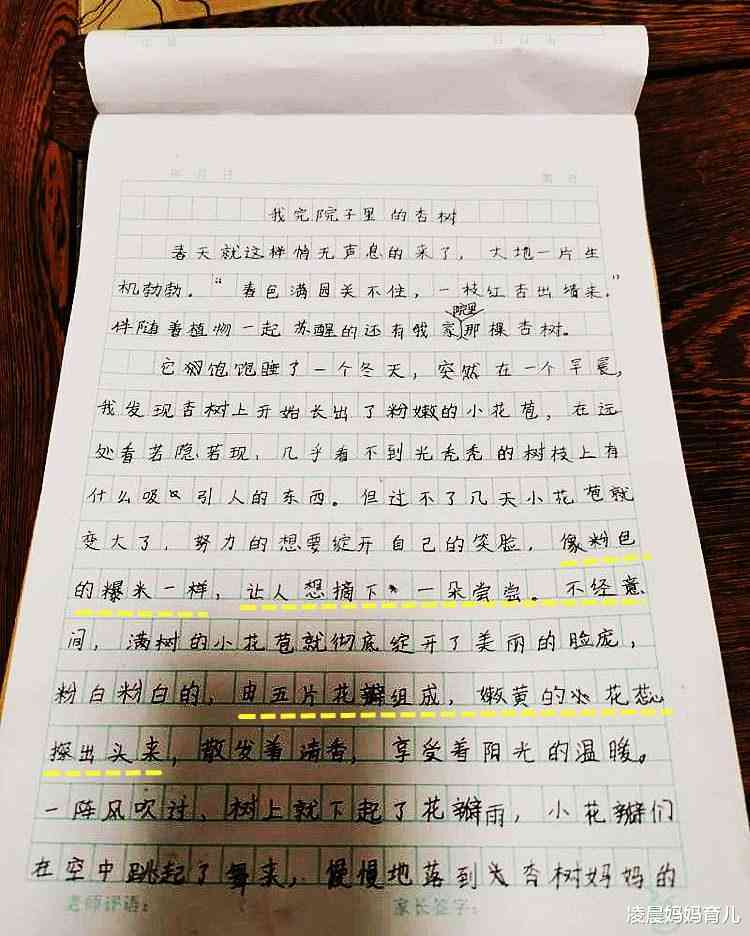 年 月 日 第 页
我家院子里的杏树
春天就这样悄无声息的来了，大地一片生
机勃勃。“春色满园关不住，一枝红杏出墙来。”
院里
伴随着植物一起苏醒的还有我家那棵杏树。
它饱饱睡了一个冬天，突然在一个早晨，
我发现杏树上开始长出了粉嫩的小花苞，在远
处看若隐若现，几乎看不到光秃秃的树枝上有
什么吸引人的东西。但过不了几天小花苞就
变大了，努力的想要绽开自己的笑脸，像粉色
的爆米一样，让人想摘下一朵尝尝。不经意
间，满树的小花苞就彻底绽开了美丽的脸庞，
粉白粉白的，由五片花瓣组成，嫩黄的小花蕊
探出头来，散发着清香，享受着阳光的温暖。
一阵风吹过，树上就下起了花瓣雨，小花瓣们
在空中跳起了舞来，慢慢地落到大杏树妈妈的
老师评语： 家长签字：
凌晨妈妈育儿